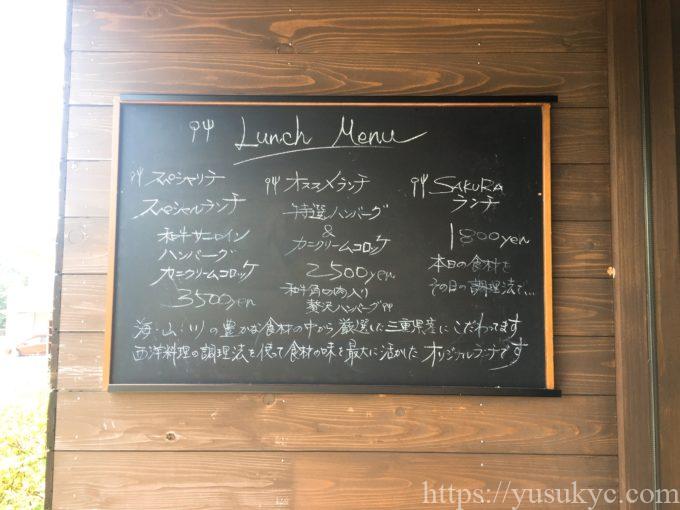 Lunch Menu
スペシャリテ
スペシャルランチ
和牛サーロイン
ハンバーグ
カニクリームコロッケ
3500yen
オススメランチ
特選ハンバーグ
&
カニクリームコロッケ
2500yen
和牛角切肉入り
贅沢ハンバーグ
SAKURA
ランチ
1800yen
本日の食材を
その日の調理法で…
海・山・川の豊かな食材の中から厳選した三重県産にこだわってます
西洋料理の調理法を使って食材の味を最大に活かしたオリジナルランチです
https://yusukyc.com